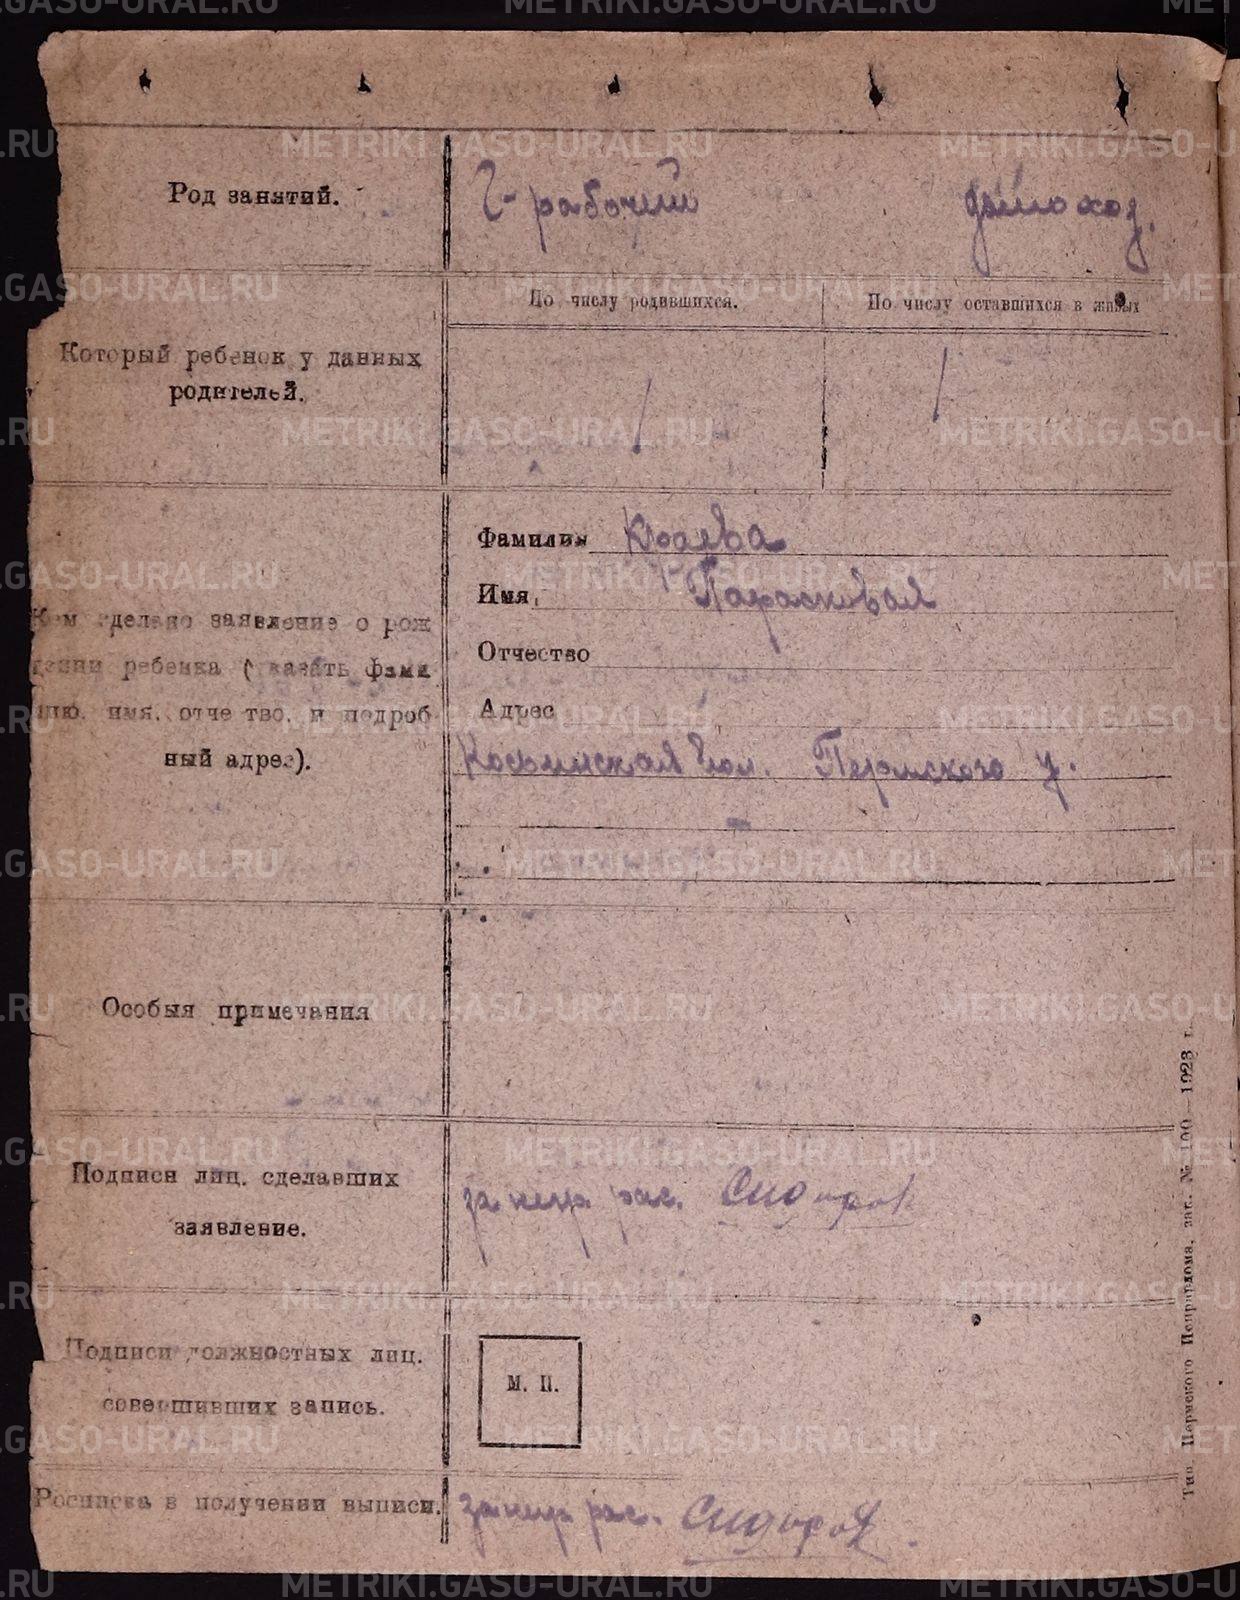 Род занятий.
Ч-рабочий
По числу родившихся.
По числу оставшихся в живых
Который ребенок у данных
родителей.
1
1
Фамилия Краева
Имя, Парасковья
Отчество
Адрес
Косьинская вол. Пермского у.
Кем сделано заявление о рож
дении ребенка ( казать фами
лию, имя, отче тво, и подроб
ный адрес).
Особыя примечания
Подписи лиц, сделавших
заявление.
за негр рас. Сидоров
Подписи должностных лиц,
совершивших запись.
М. П.
Росписка в получении выписи.
за негр рас. Сидоров
Тип. Пермского Исправдома, зак. № 100—1923 г.
METRIKI.GASO-URAL.RU